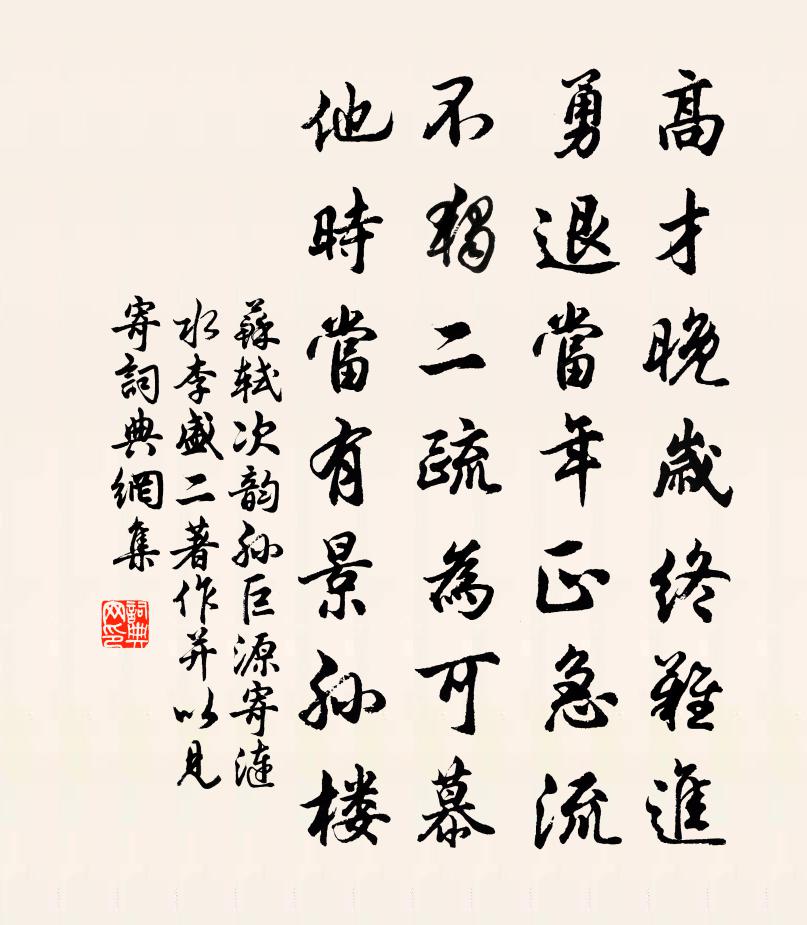 高才晚歲終難進
勇退當年正急流
不獨二疏為可慕
他時當有景孫樓
蘇軾次韵孫巨源寄漣
水李盛二著作并以見
寄詞典網集
詞典
网印